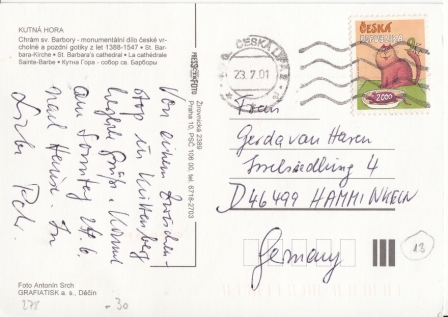 KUTNÁ HORA
Chrám sv. Barbory - monumentální dílo české vr-
cholné a pozdní gotiky z let 1388-1547 • St. Bar-
bara-Kirche • St. Barbara's cathedral • La cathédrale
Sainte-Barbe • Кутна Гора - собор св. Барборы
PRESSFOTO
Žirovnická 2389
Praha 10, PSČ 106 00, tel. 6718-2703
Von einem Zwischen-
stop in Wittenberg
herzl. Grüße. Komme
am Sonntag
nach Hause. In
Liebe
Foto Antonín Srch
GRAFIATISK a. s., Děčín
278
-30
ČESKÁ LÍPA
23. 7. 01
ČESKÁ
REPUBLIKA
Frau
Gerda van Haren
Isselsiedlung 4
D 46499 HAMMINKELN
Germany
13